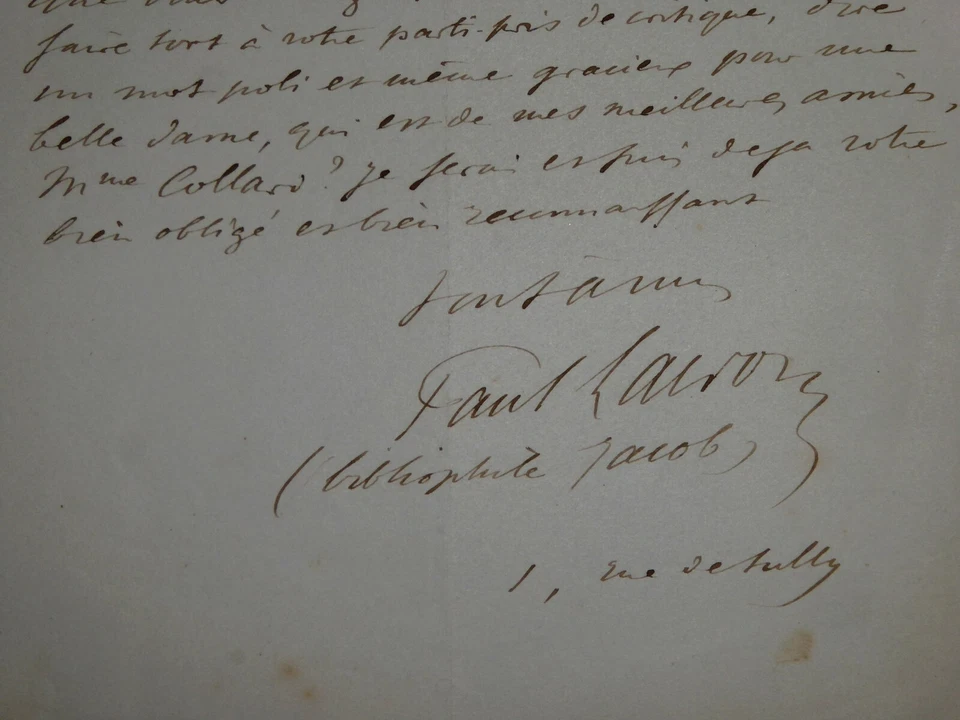 que vous
faire tort à votre parti-pris de critique, dire
un mot poli et même gracieux pour une
belle dame, qui est de mes meilleures amies,
Mme Collard ? Je serai et suis deja votre
bien obligé et bien reconnaissant
Paul Lacroix
(bibliophile Jacob)
1, rue de Sully